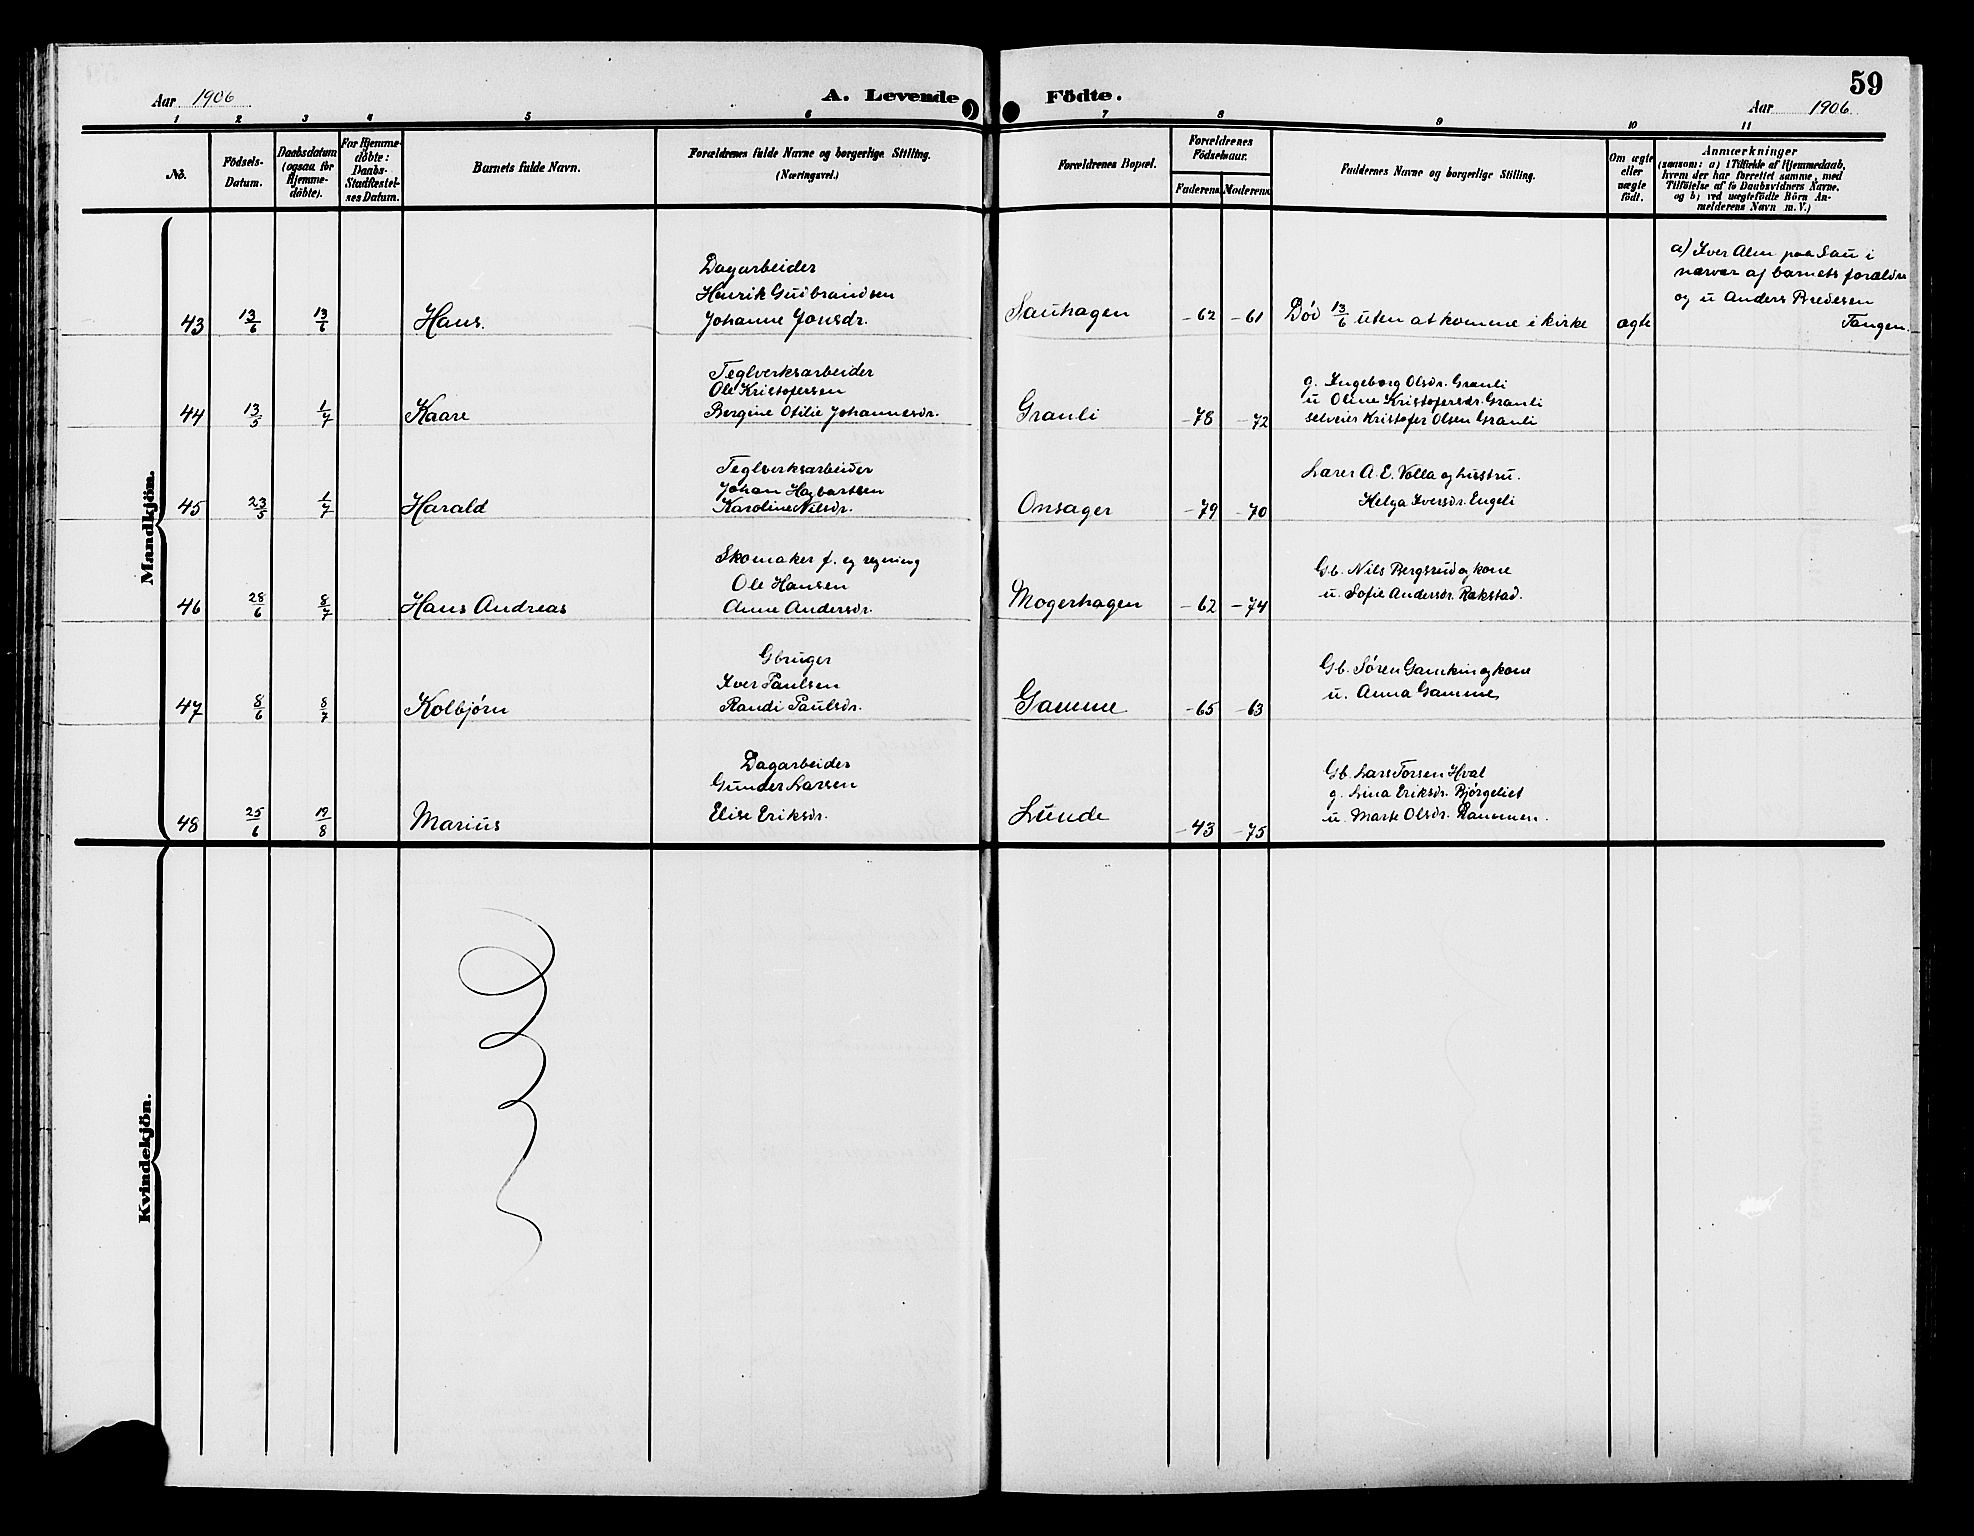 59
Aar 1906
A. Levende
Födte.
Aar 1906.
1 2 3 4 5 6 7 8 9 10 11
No.
Födsels-
Datum.
Daabsdatum
(ogsaa for
Hjemme-
døbte).
For Hjemme-
døbte:
Daabs-
Stadfæstel-
ses Datum.
Barnets fulde Navn.
Forældrenes fulde Navne og borgerlige Stilling.
(Næringsvei.)
Forældrenes Bopæl.
Forældrenes
Födselsaar.
Faderens.
Moderens.
Faddernes Navne og borgerlige Stilling.
Om ægte
eller
uægte
födt.
Anmærkninger
(saasom: a) i Tilfælde af Hjemmedaab,
hvem der har forrettet samme, med
Tilföielse af to Daabsvidners Navne,
og b) ved uægtefödte Börn An-
melderens Navn m. V.)
Mandkjön.
Dagarbeider
Henrik Gudbrandsen
43 13/6 13/6 Hans. Johanne Jonsdr. Sauhagen -62 -61 Død 13/6 uten at komme i kirke ægte
a) Iver Alm paa Sau i
nærvær af barnets forældre
og u Anders Bredesen
Tangen.
Teglverksarbeider
Ole Kristofersen
44 13/5 1/7 Kaare Bergine Otilie Johannesdr. Granli -78 -72
g. Ingeborg Olsdr. Granli
u Oline Kristofersdr. Granli
selveier Kristofer Olsen Granli
Teglverksarbeider
Johan Hagbartsen
45 23/5 1/7 Harald Karoline Nilsdr. Onsager -79 -70
Lærer A. E. Volla og hustru.
Helga Iversdr. Engeli
Skomaker f. eg regning
Ole Hansen
46 28/6 8/7 Hans Andreas Anne Andersdr. Mogerhagen -62 -74
Gb. Nils Bergsrud og kone
u. Sofie Andersdr. Rakstad.
Gbruger
Iver Paulsen
47 8/6 8/7 Kolbjørn Randi Paulsdr. Gamme -65 -63
Gb. Søren Gamkin og kone
u. Anna Gamme
Dagarbeider
Gunder Larsen
48 25/6 19/8 Marius Elise Eriksdr. Lunde -43 -75
Gb. Lars Torsen Hval
g. Lina Eriksdr. Bjørgeliet
u. Marte Olsdr. Rammen.
Kvindekjön.